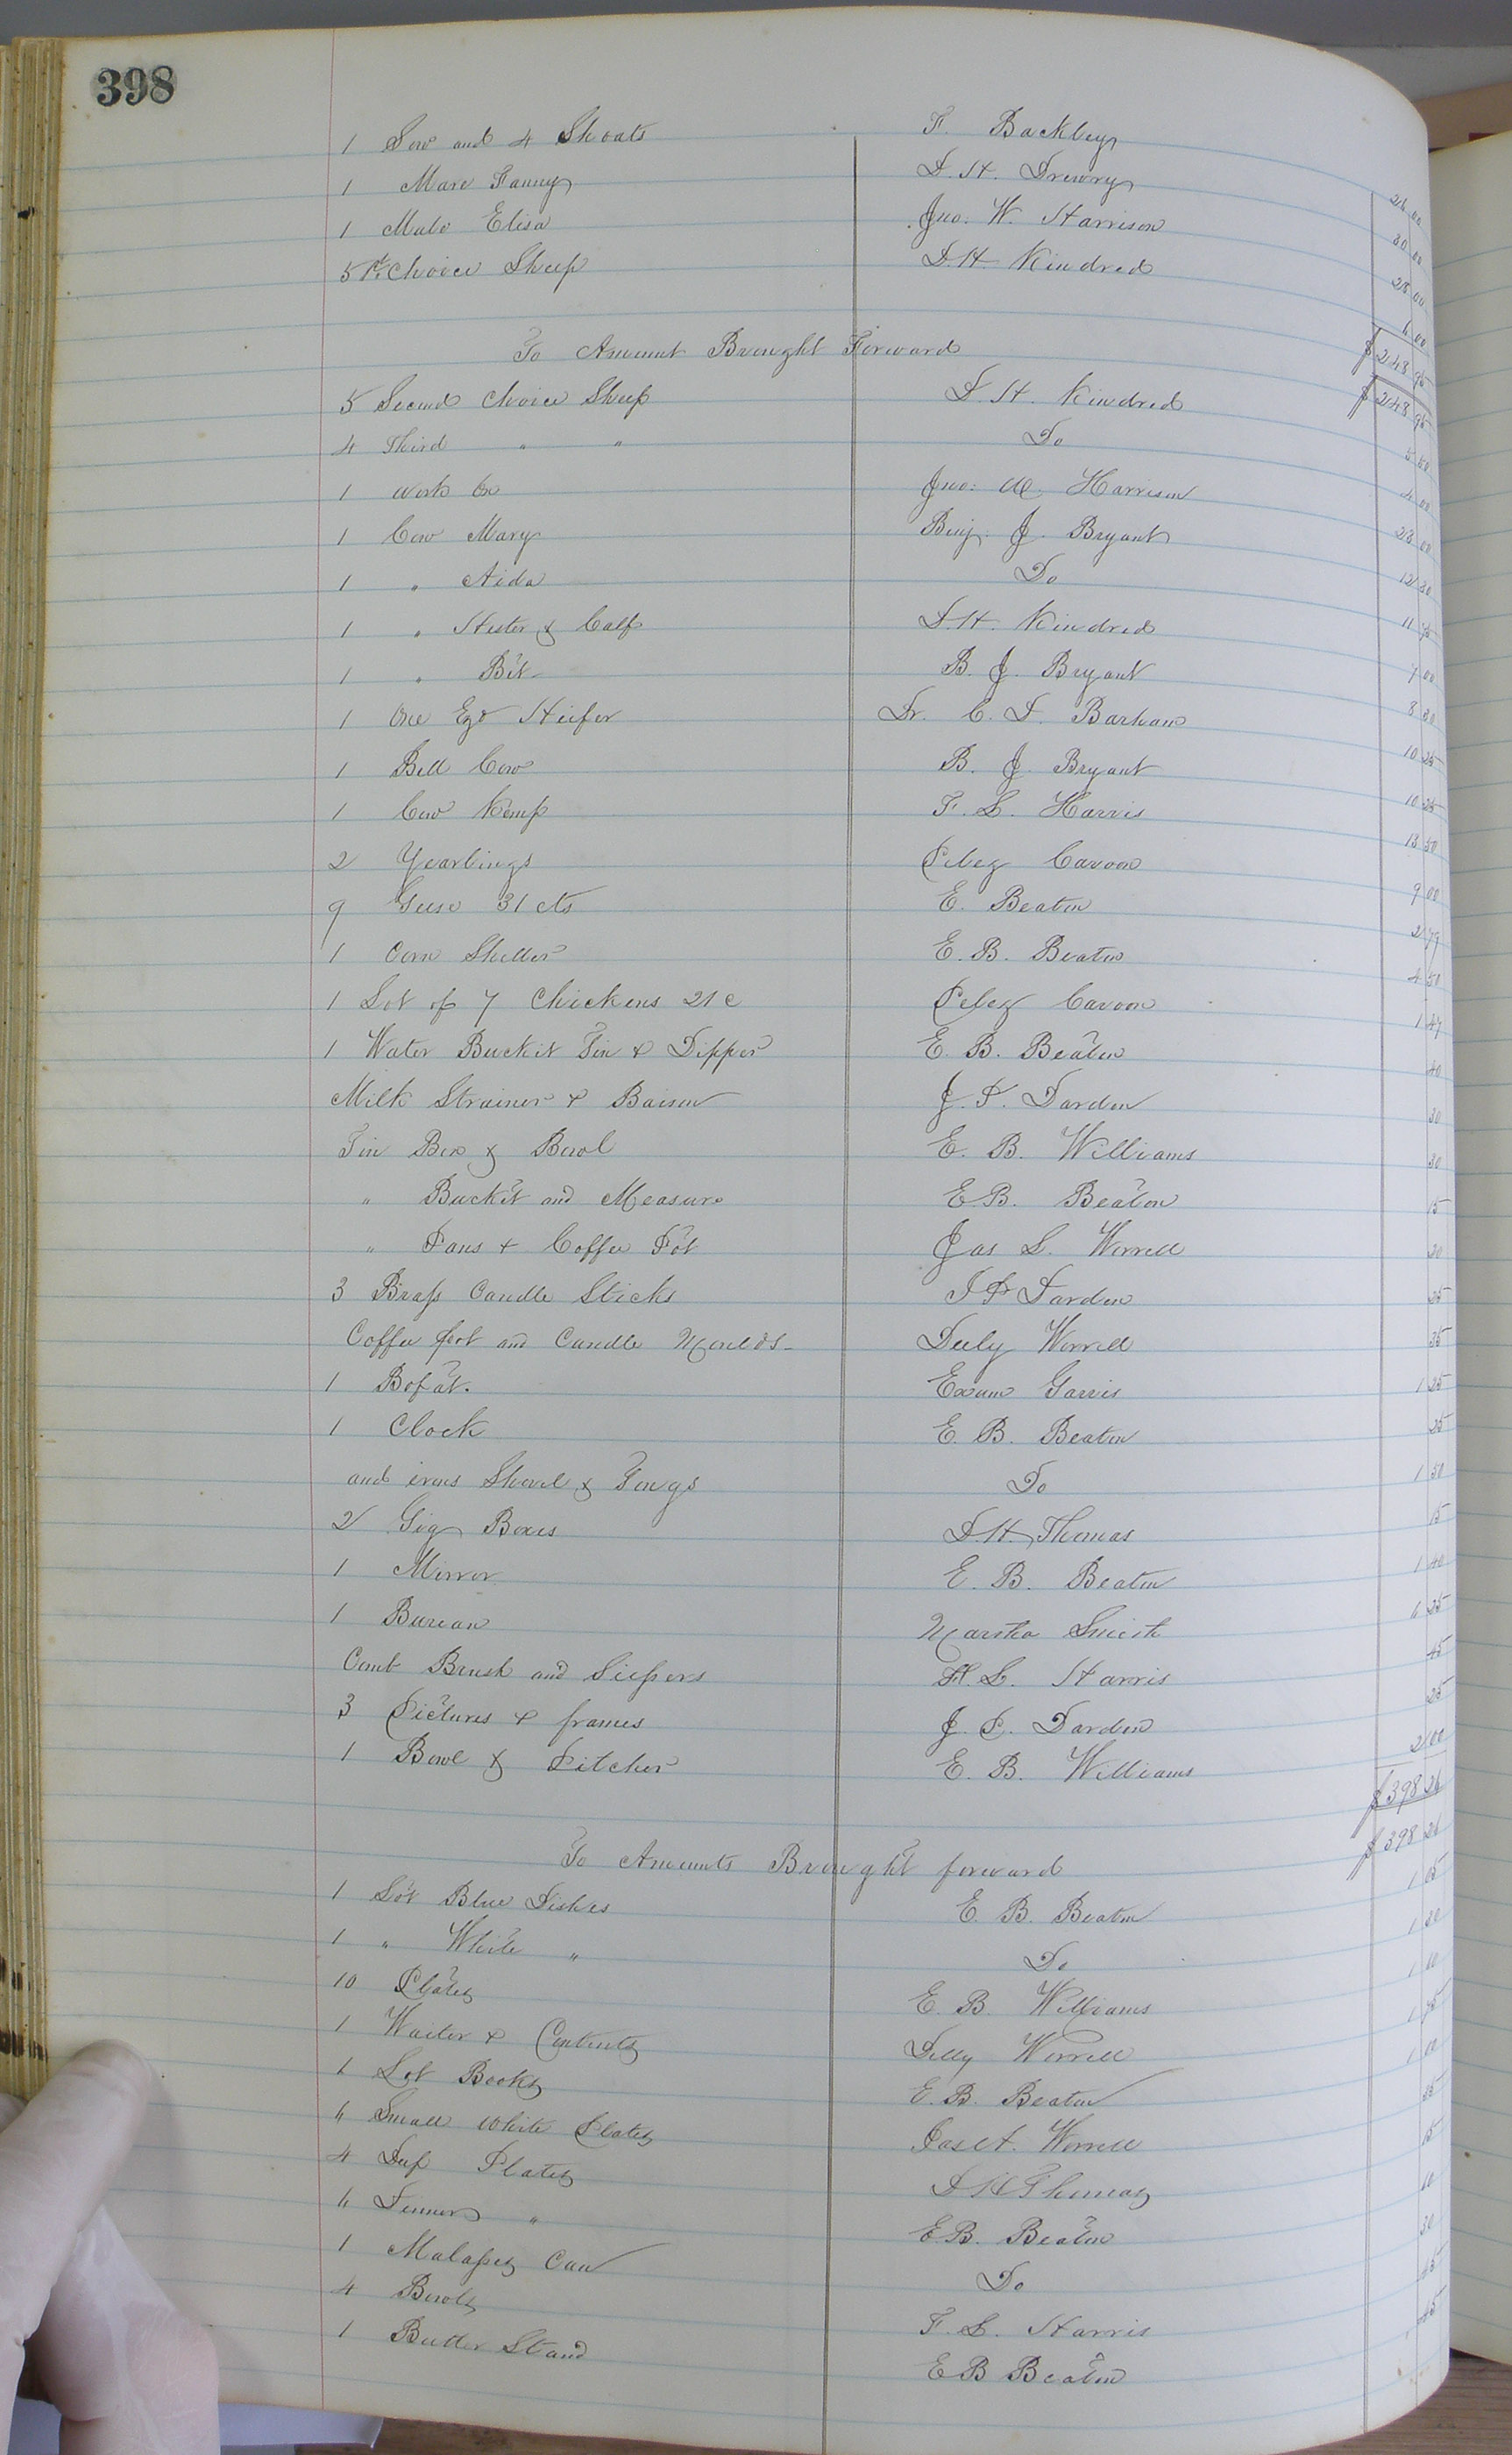 398
1 Sow and 4 Shoats F. Backley 26 00
1 Mare Fanny D. H. Drewry 30 00
1 Mule Elisa Jno. W. Harrison 28 00
5 1st Choice Sheep D. H. Kindred 6 00
$248 95
To Amount Brought Forward $248 95
5 Second Choice Sheep D. H. Kindred 5 50
4 Third " " Do 4 00
1 Work Ox Jno: W. Harrison 28 00
1 Cow Mary Benj. J. Bryant 12 30
1 " Aida Do 11
1 " Hester & Calf D. H. Kindred 7 00
1 " Bet B. J. Bryant 8 30
1 One Eyd Heifer Dr. C. D. Barham 10 25
1 Bell Cow B. J. Bryant 10 25
1 Cow Kemp F. L. Harris 13 50
2 Yearlings Peleg Cavoon 9 00
9 Geese 31 cts E. Beaton 2 79
1 Corn Sheller E. B. Beaton 4 50
1 Lot of 7 Chickens 21 c Peleg Cavoon 1 47
1 Water Bucket Tin & Dipper E. B. Beaton 40
Milk Strainer & Baison J. P. Darden 30
Tin Box & Bowl E. B. Williams 30
" Bucket and Measure E. B. Beaton 15
" Pans & Coffee Pot Jas L. Worrell 20
3 Brass Candle Sticks J P Darden 25
Coffee pot and Candle Moulds Dely Worrell 35
1 Bofat. Exum Garris 1 25
1 Clock E. B. Beaton 25
and irons Shovel & Tongs Do 1 50
2 Gig Boxes D. H. Thomas 15
1 Mirror E. B. Beaton 1 40
1 Bureau Martha Smith 6 25
Comb Brush and H. L. Harris 45
3 Pictures & frames J. P. Darden 25
1 Bowl & Pitcher E. B. Williams 2 00
$398 26
To Amounts Brought forward $398 26
1 Lot Blue Dishes E. B. Beaton 1 05
1 " White " Do 1 30
10 Plates E. B. Williams 1
1 Waiter & Contents Dilly Worrell 1
1 Lot Books E. B. Beaton 1
6 Small White Plates Worrell 25
4 Deep Plates D H Thomas 15
6 Dinner " E. B. Beaton 10
1 Malasses Can Do 30
4 Bowls F. L. Harris
1 Butter Stand E B Beaton